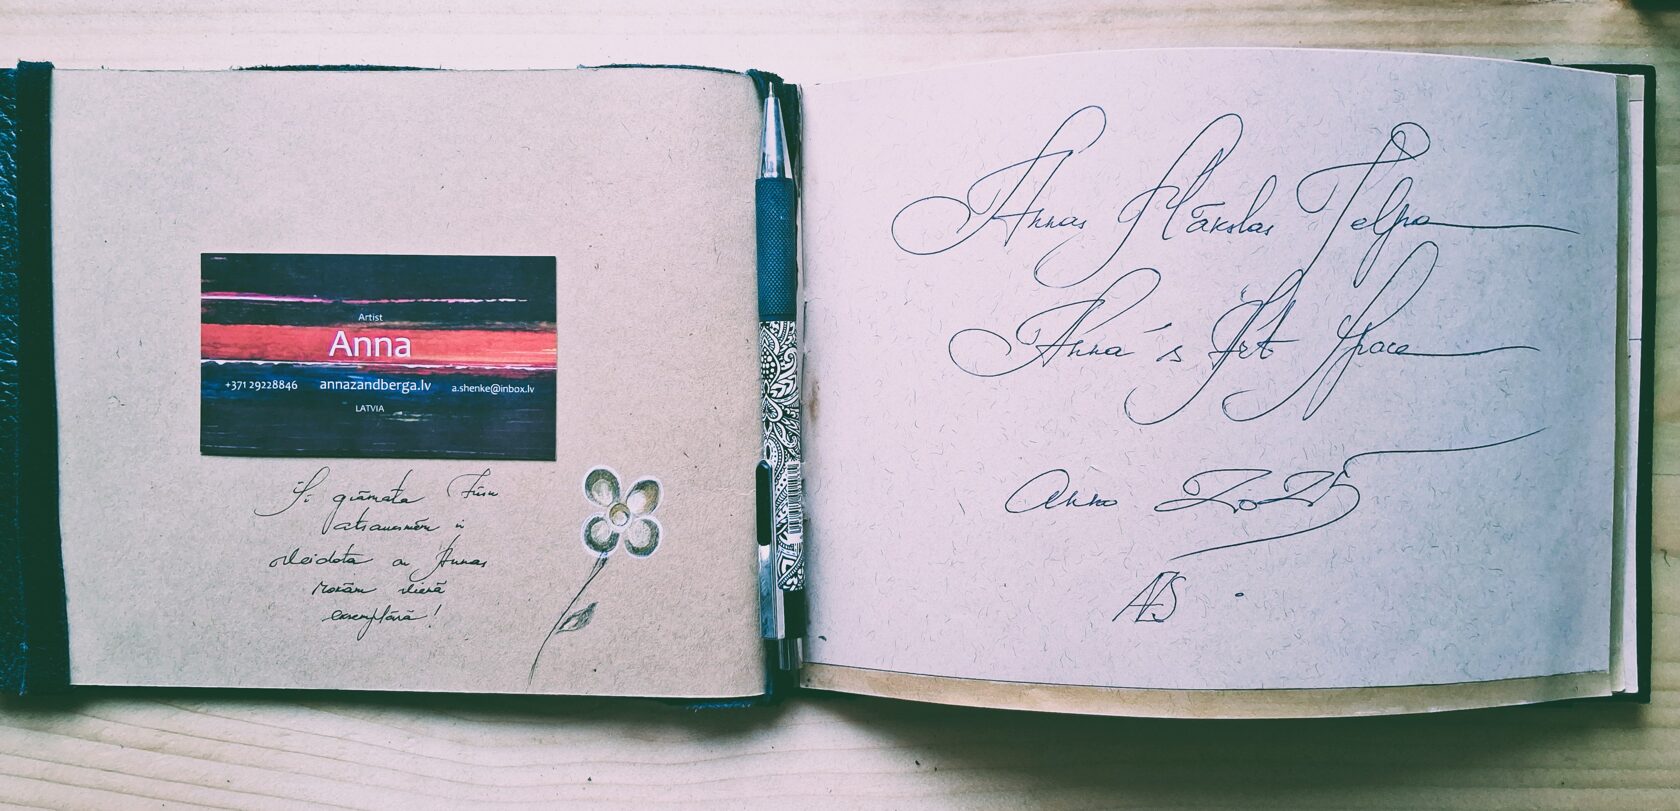 Artist
Anna
+371 29228846 annazandberga.lv a.shenke@inbox.lv
LATVIA
Šī grāmata Jūsu
atsauksmēm ir
veidota ar Annas
rokām vienā
eksemplārā!
Annas Mākslas Telpa
Anna's Art Space
Anno 2025
AZS